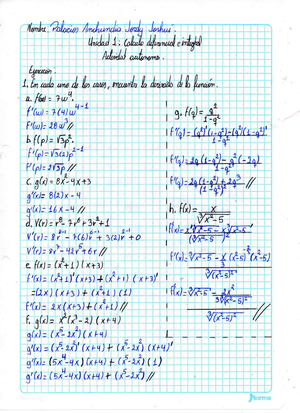 Nombre: Palacios Anchundia Jerdy Joshue.
Unidad 1: Calculo diferencial e integral
Actividad autonoma.
Ejercicios:
1. En cada uno de los casos, encuentre la derivada de la función.
a. f(w) = 7w⁴.
f'(w) = 7(4)w⁴⁻¹
f'(w) = 28w³//
b. f(p) = √3p².
f'(p) = √3(2)p²⁻¹
f'(p) = 2√3p//
c. g(x) = 8x²-4x+3
g'(x) = 8(2)x-4
g'(x) = 16x-4//
d. V(r) = r⁸-7r⁶+3r²+1
V'(r) = 8r⁸⁻¹-7(6)r⁶⁻¹+3(2)r²⁻¹+0
V'(r) = 8r⁷-42r⁵+6r//
e. f(x) = (x²+1)(x+3)
f'(x) = (x²+1)'(x+3)+(x²+1)(x+3)'
=(2x)(x+3)+(x²+1)(1)
f'(x) = 2x(x+3)+(x²+1)//
f. g(x) = x²(x³-2)(x+4)
g(x) = (x⁵-2x²)(x+4)
g'(x) = (x⁵-2x²)'(x+4)+(x⁵-2x²)(x+4)'
g'(x) = (5x⁴-4x)(x+4)+(x⁵-2x²)(1)
g'(x) = (5x⁴-4x)(x+4)+(x⁵-2x²)//
g. f(q) = q²/1-q²
f'(q) = (q²)'(1-q²)-(q²)(1-q²)'/(1-q²)²
f'(q) = 2q(1-q²)-q²(-2q)/(1-q²)²
f'(q) = 2q(1-q²)+2q³/(1-q²)²//
h. f(x) = x/∛x²-5
Norma